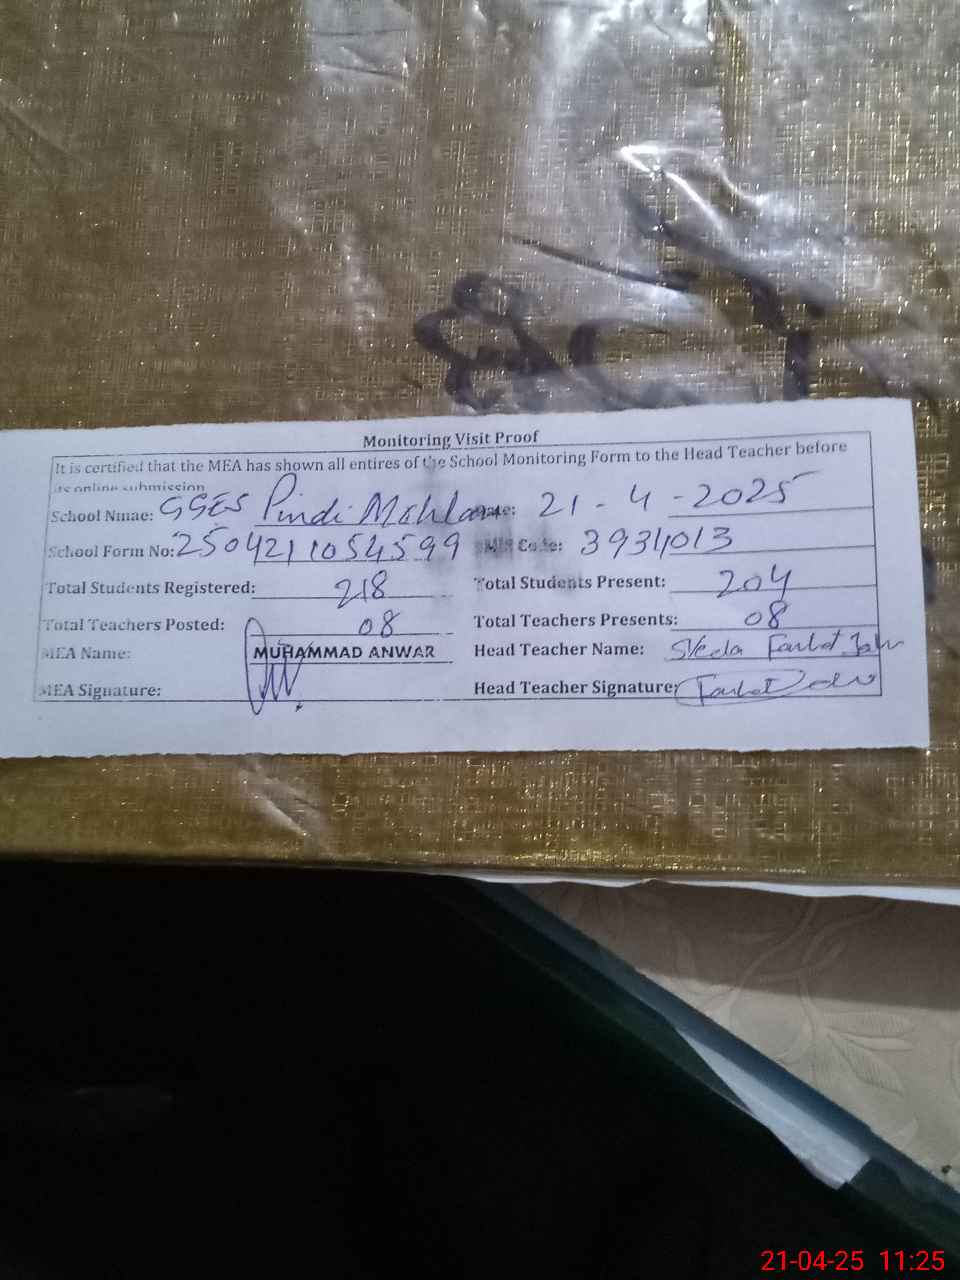 Monitoring Visit Proof
It is certified that the MEA has shown all entires of the School Monitoring Form to the Head Teacher before
its online submission
School Nmae: GGES Pindi Date: 21-4-2025
School Form No: 2504211054599 Code: 3934013
Total Students Registered: 218 Total Students Present: 204
Total Teachers Posted: 08 Total Teachers Presents: 08
MEA Name: MUHAMMAD ANWAR Head Teacher Name:
MEA Signature: Head Teacher Signature:
21-04-25 11:25